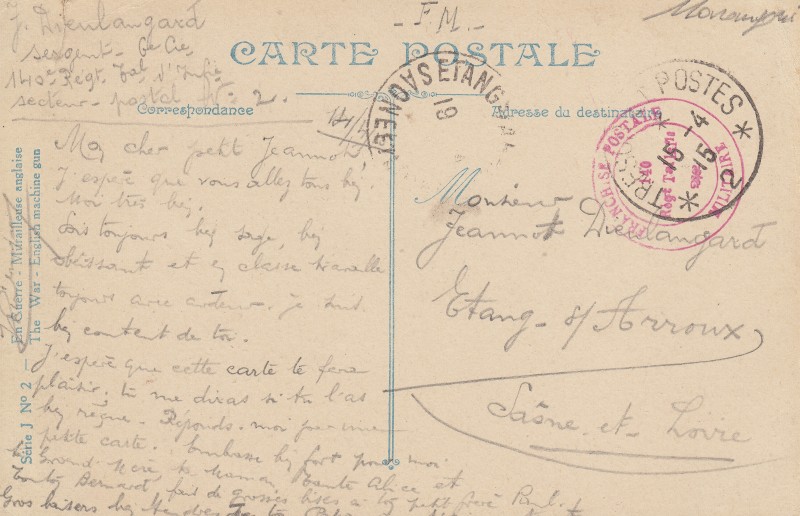 J. Dieulangard
sergent - 6e Cie
140e Régt Tal d'Infie
secteur - postal N° 2.
- F.M. -
CARTE POSTALE
Correspondance
Adresse du destinataire
14/4
Mon cher petit Jeannot,
J'espère que vous allez tous bien
Moi très bien.
Sois toujours bien sage, bien
obéissant et en classe travaille
toujours avec ardeur. Je suis
bien content de toi.
J'espère que cette carte te fera
plaisir, tu me diras si tu l'as
bien reçue. Réponds-moi par une
petite carte. Embrasse bien fort pour moi
ta Grand-Mère ta Maman, Tante Alice et
Tonton Bernard, fais de grosses bises à ton petit frère Paul.
Gros baisers bien tendres de ton Papa
Monsieur
Jeannot Dieulangard
Etang-s/Arroux
Saône-et-Loire
ETANG
SAONE
19
TRESOR ET POSTES
* 2 *
16 - 4
15
FRANCHISE POSTALE MILITAIRE
140
Régt Territorial
En Guerre - Mitrailleuse anglaise
The War - English machine gun
Série J N° 2 -